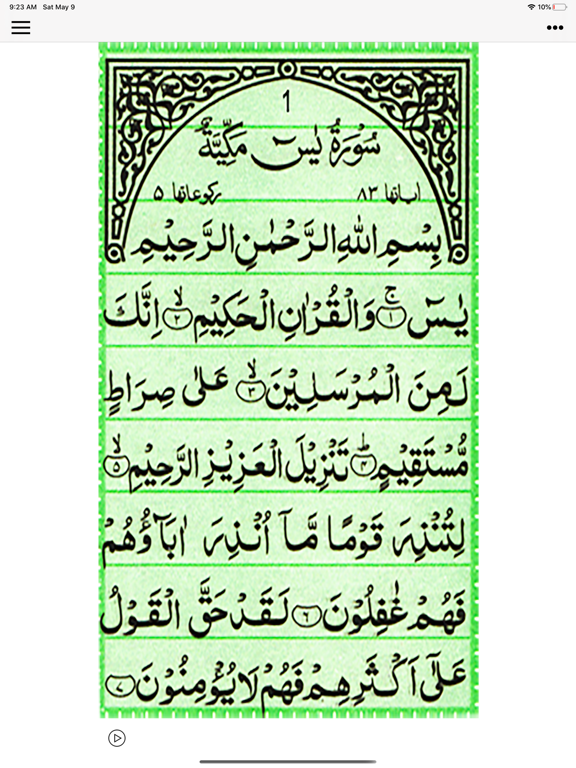 9:23 AM Sat May 9 10%
1
سُوْرَةُ يٰسٓ مَكِّيَّةٌ
اٰياتها ٨٣ ركوعاتها ٥
بِسْمِ اللهِ الرَّحْمٰنِ الرَّحِيْمِ
يٰسٓ ۚ﴿١﴾ وَالْقُرْاٰنِ الْحَكِيْمِ ۙ﴿٢﴾ اِنَّكَ
لَمِنَ الْمُرْسَلِيْنَ ۙ﴿٣﴾ عَلٰى صِرَاطٍ
مُّسْتَقِيْمٍ ؕ﴿٤﴾ تَنْزِيْلَ الْعَزِيْزِ الرَّحِيْمِ ۙ﴿٥﴾
لِتُنْذِرَ قَوْمًا مَّاۤ اُنْذِرَ اٰبَآؤُهُمْ
فَهُمْ غٰفِلُوْنَ ﴿٦﴾ لَقَدْ حَقَّ الْقَوْلُ
عَلٰۤى اَكْثَرِهِمْ فَهُمْ لَا يُؤْمِنُوْنَ ﴿٧﴾